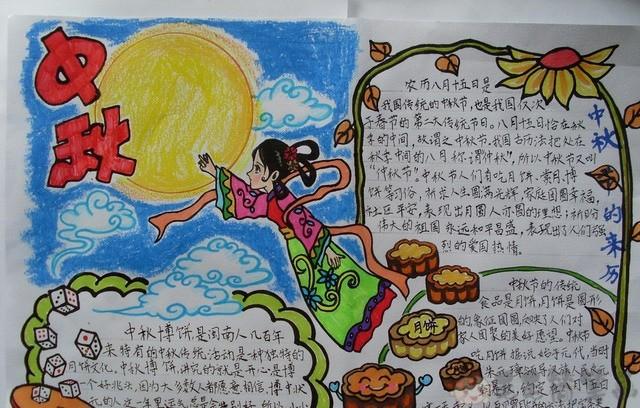 中秋
中秋的来历
农历八月十五日是
我国传统的中秋节,也是我国仅次
于春节的第二大传统节日。八月十五日恰在秋
季的中间,故谓之中秋节。我国古历法把处在
秋季中间的八月称谓"仲秋",所以中秋节又叫
"仲秋节"。中秋节人们有吃月饼、赏月、博
饼等习俗,祈求人生圆满光辉,家庭团圆幸福,
社区平安,表现出月圆人亦圆的理想;祈盼
伟大的祖国永远和平昌盛,表现出了人们强
烈的爱国热情。
中秋节的传统
食品是月饼,月饼是圆形
的,象征团圆,反映了人们对
家人团聚的美好愿望。中秋节
吃月饼据说始于元代,当时
朱元璋领导人民
八月十五日
月饼
中秋博饼,是闽南人几百年
来特有的中秋传统活动,是一种独特的
月饼文化。中秋博饼,讲究的就是开心,是博
一个好兆头,因为大多数人都愿意相信,博中状
元的人这一年里运气总是会特别好